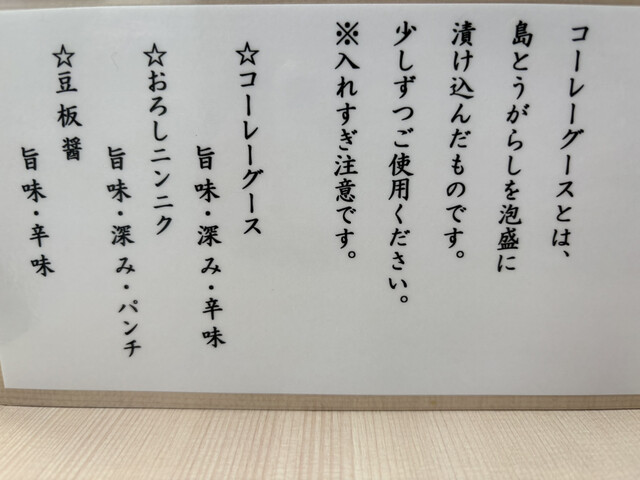 コーレーグースとは、
島とうがらしを泡盛に
漬け込んだものです。
少しずつご使用ください。
※入れすぎ注意です。
☆コーレーグース
旨味・深み・辛味
☆おろしニンニク
旨味・深み・パンチ
☆豆板醤
旨味・辛味